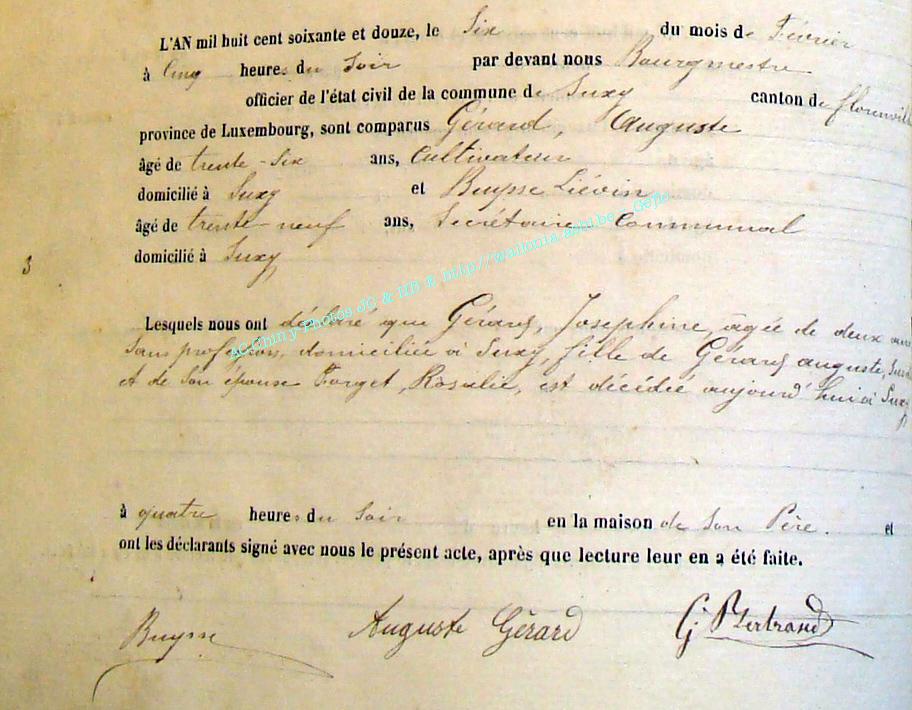 L'AN mil huit cent soixante et douze, le Six du mois de Février
à Cinq heures du Soir par devant nous Bourgmestre
officier de l'état civil de la commune de Suxy canton de florenville
province de Luxembourg, sont comparus Gérard, Auguste
âgé de trente-six ans, Cultivateur
domicilié à Suxy et Buysse Liévin
âgé de trente-neuf ans, Secrétaire Communal
domicilié à Suxy
3
AC Chiny-Photos JC & HB & http//wallonia.asbl.be - Gefé
Lesquels nous ont déclaré que Gérard, Joséphine, âgée de deux ans
Sans profession, domiciliée à Suxy, fille de Gérard auguste,
et de Son épouse Forget, Rosalie, est décédée aujourd'hui à Suxy
à quatre heures du Soir en la maison de Son Père. et
ont les déclarants signé avec nous le présent acte, après que lecture leur en a été faite.
Buysse Auguste Gérard G. Bertrand